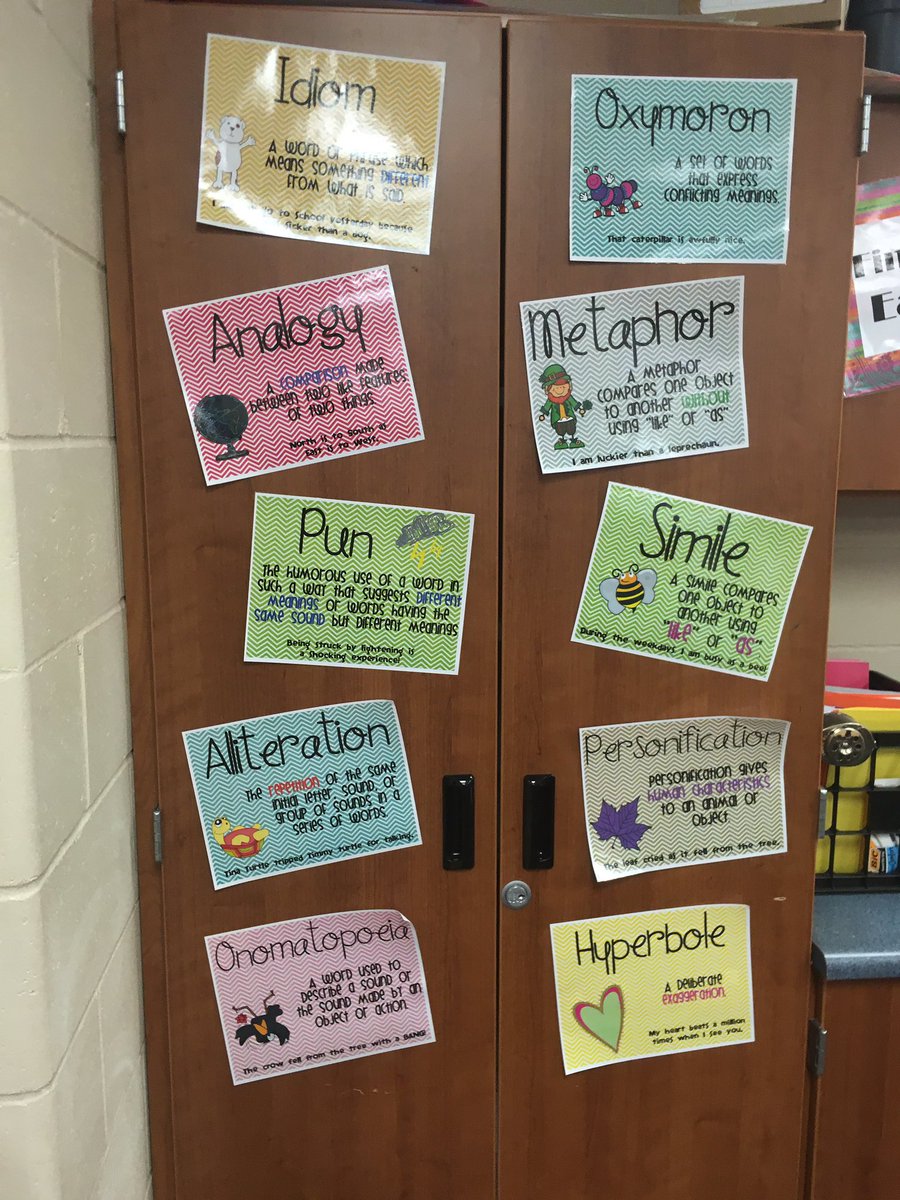 Idiom
A word or phrase which
means something different
from what is said.
to school yesterday because
sicker than a dog.
Oxymoron
A set of words
that express
conflicting meanings.
That caterpillar is awfully nice.
Analogy
A comparison made
between two like features
of two things
North is to South as
East is to West.
Metaphor
A metaphor
compares one object
to another without
using "like" or "as"
I am luckier than a leprechaun.
Pun
The humorous use of a word in
such a way that suggests different
meanings or words having the
same sound but different meanings
Being struck by lightening is
a shocking experience!
Simile
A simile compares
one object to
another using
"like" or "as"
During the weekdays I am busy as a bee!
Alliteration
The repetition of the same
initial letter sound, or
group of sounds in a
series of words.
Tina Turtle tripped Timmy Turtle for talking.
Personification
Personification gives
human characteristics
to an animal or
object.
The leaf cried as it fell from the tree.
Onomatopoeia
A word used to
describe a sound or
the sound made by an
object or action.
The crow fell from the tree with a BANG!
Hyperbole
A deliberate
exaggeration.
My heart beats a million
times when I see you.
BIC